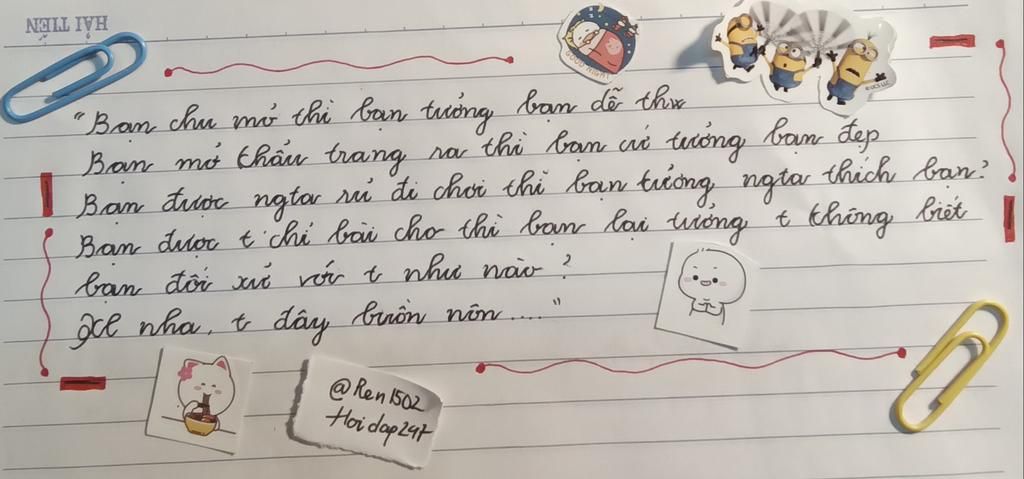 HẢI TIẾN
GOOD NIGHT
"Bạn chu mỏ thì bạn tưởng bạn dễ thw
Bạn mở khẩu trang ra thì bạn cứ tưởng bạn đẹp
Bạn được ngta rủ đi chơi thì bạn tưởng ngta thích bạn?
Bạn được t chỉ bài cho thì bạn lại tưởng t không biết
bạn đối xử với t như nào?
Xl nha, t đây buồn nôn...."
@Ren1502
Hoidap247